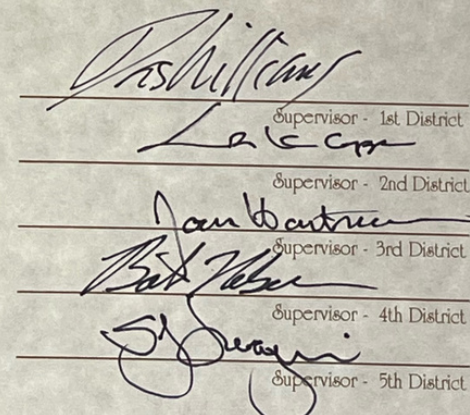 Das Williams
Supervisor - 1st District
Supervisor - 2nd District
Joan Hartmann
Supervisor - 3rd District
Supervisor - 4th District
Supervisor - 5th District